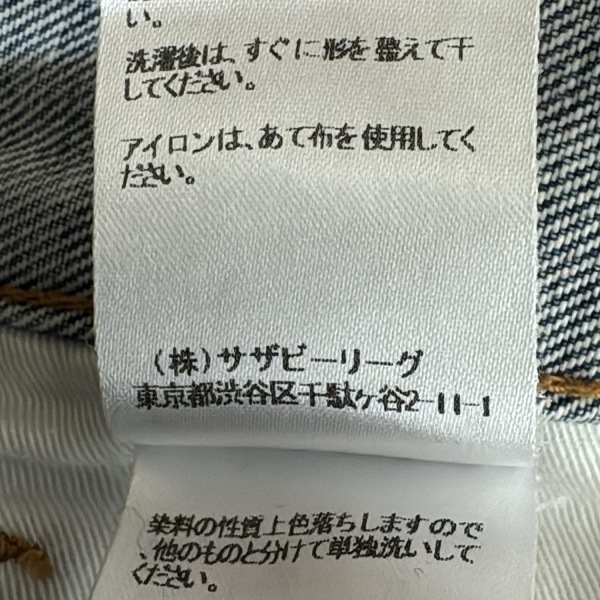 い。
洗濯後は、すぐに形を整えて干
してください。
アイロンは、あて布を使用してく
ださい。
(株)サザビーリーグ
東京都渋谷区千駄ヶ谷2-11-1
染料の性質上色落ちしますので
、他のものと分けて単独洗いして
ください。